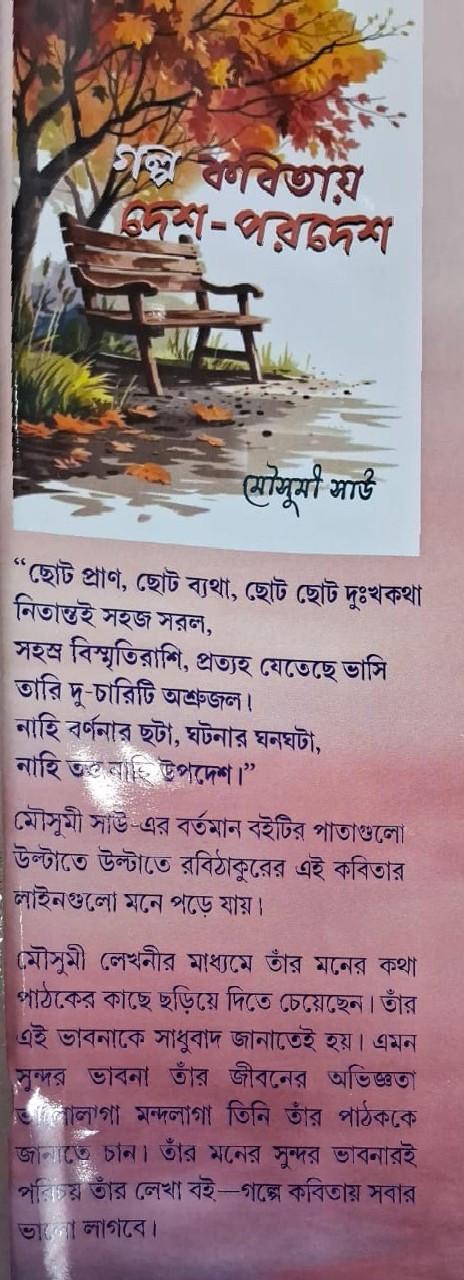 গল্প কবিতায়
দেশ-পরদেশ
মৌসুমী সাউ
“ছোট প্রাণ, ছোট ব্যথা, ছোট ছোট দুঃখকথা
নিতান্তই সহজ সরল,
সহস্র বিস্মৃতিরাশি, প্রত্যহ যেতেছে ভাসি
তারি দু-চারিটি অশ্রুজল।
নাহি বর্ণনার ছটা, ঘটনার ঘনঘটা,
নাহি তত্ত্ব নাহি উপদেশ।”
মৌসুমী সাউ-এর বর্তমান বইটির পাতাগুলো
উল্টাতে উল্টাতে রবিঠাকুরের এই কবিতার
লাইনগুলো মনে পড়ে যায়।
মৌসুমী লেখনীর মাধ্যমে তাঁর মনের কথা
পাঠকের কাছে ছড়িয়ে দিতে চেয়েছেন। তাঁর
এই ভাবনাকে সাধুবাদ জানাতেই হয়। এমন
সুন্দর ভাবনা তাঁর জীবনের অভিজ্ঞতা
ভালোলাগা মন্দলাগা তিনি তাঁর পাঠককে
জানাতে চান। তাঁর মনের সুন্দর ভাবনারই
পরিচয় তাঁর লেখা বই—গল্পে কবিতায় সবার
ভালো লাগবে।